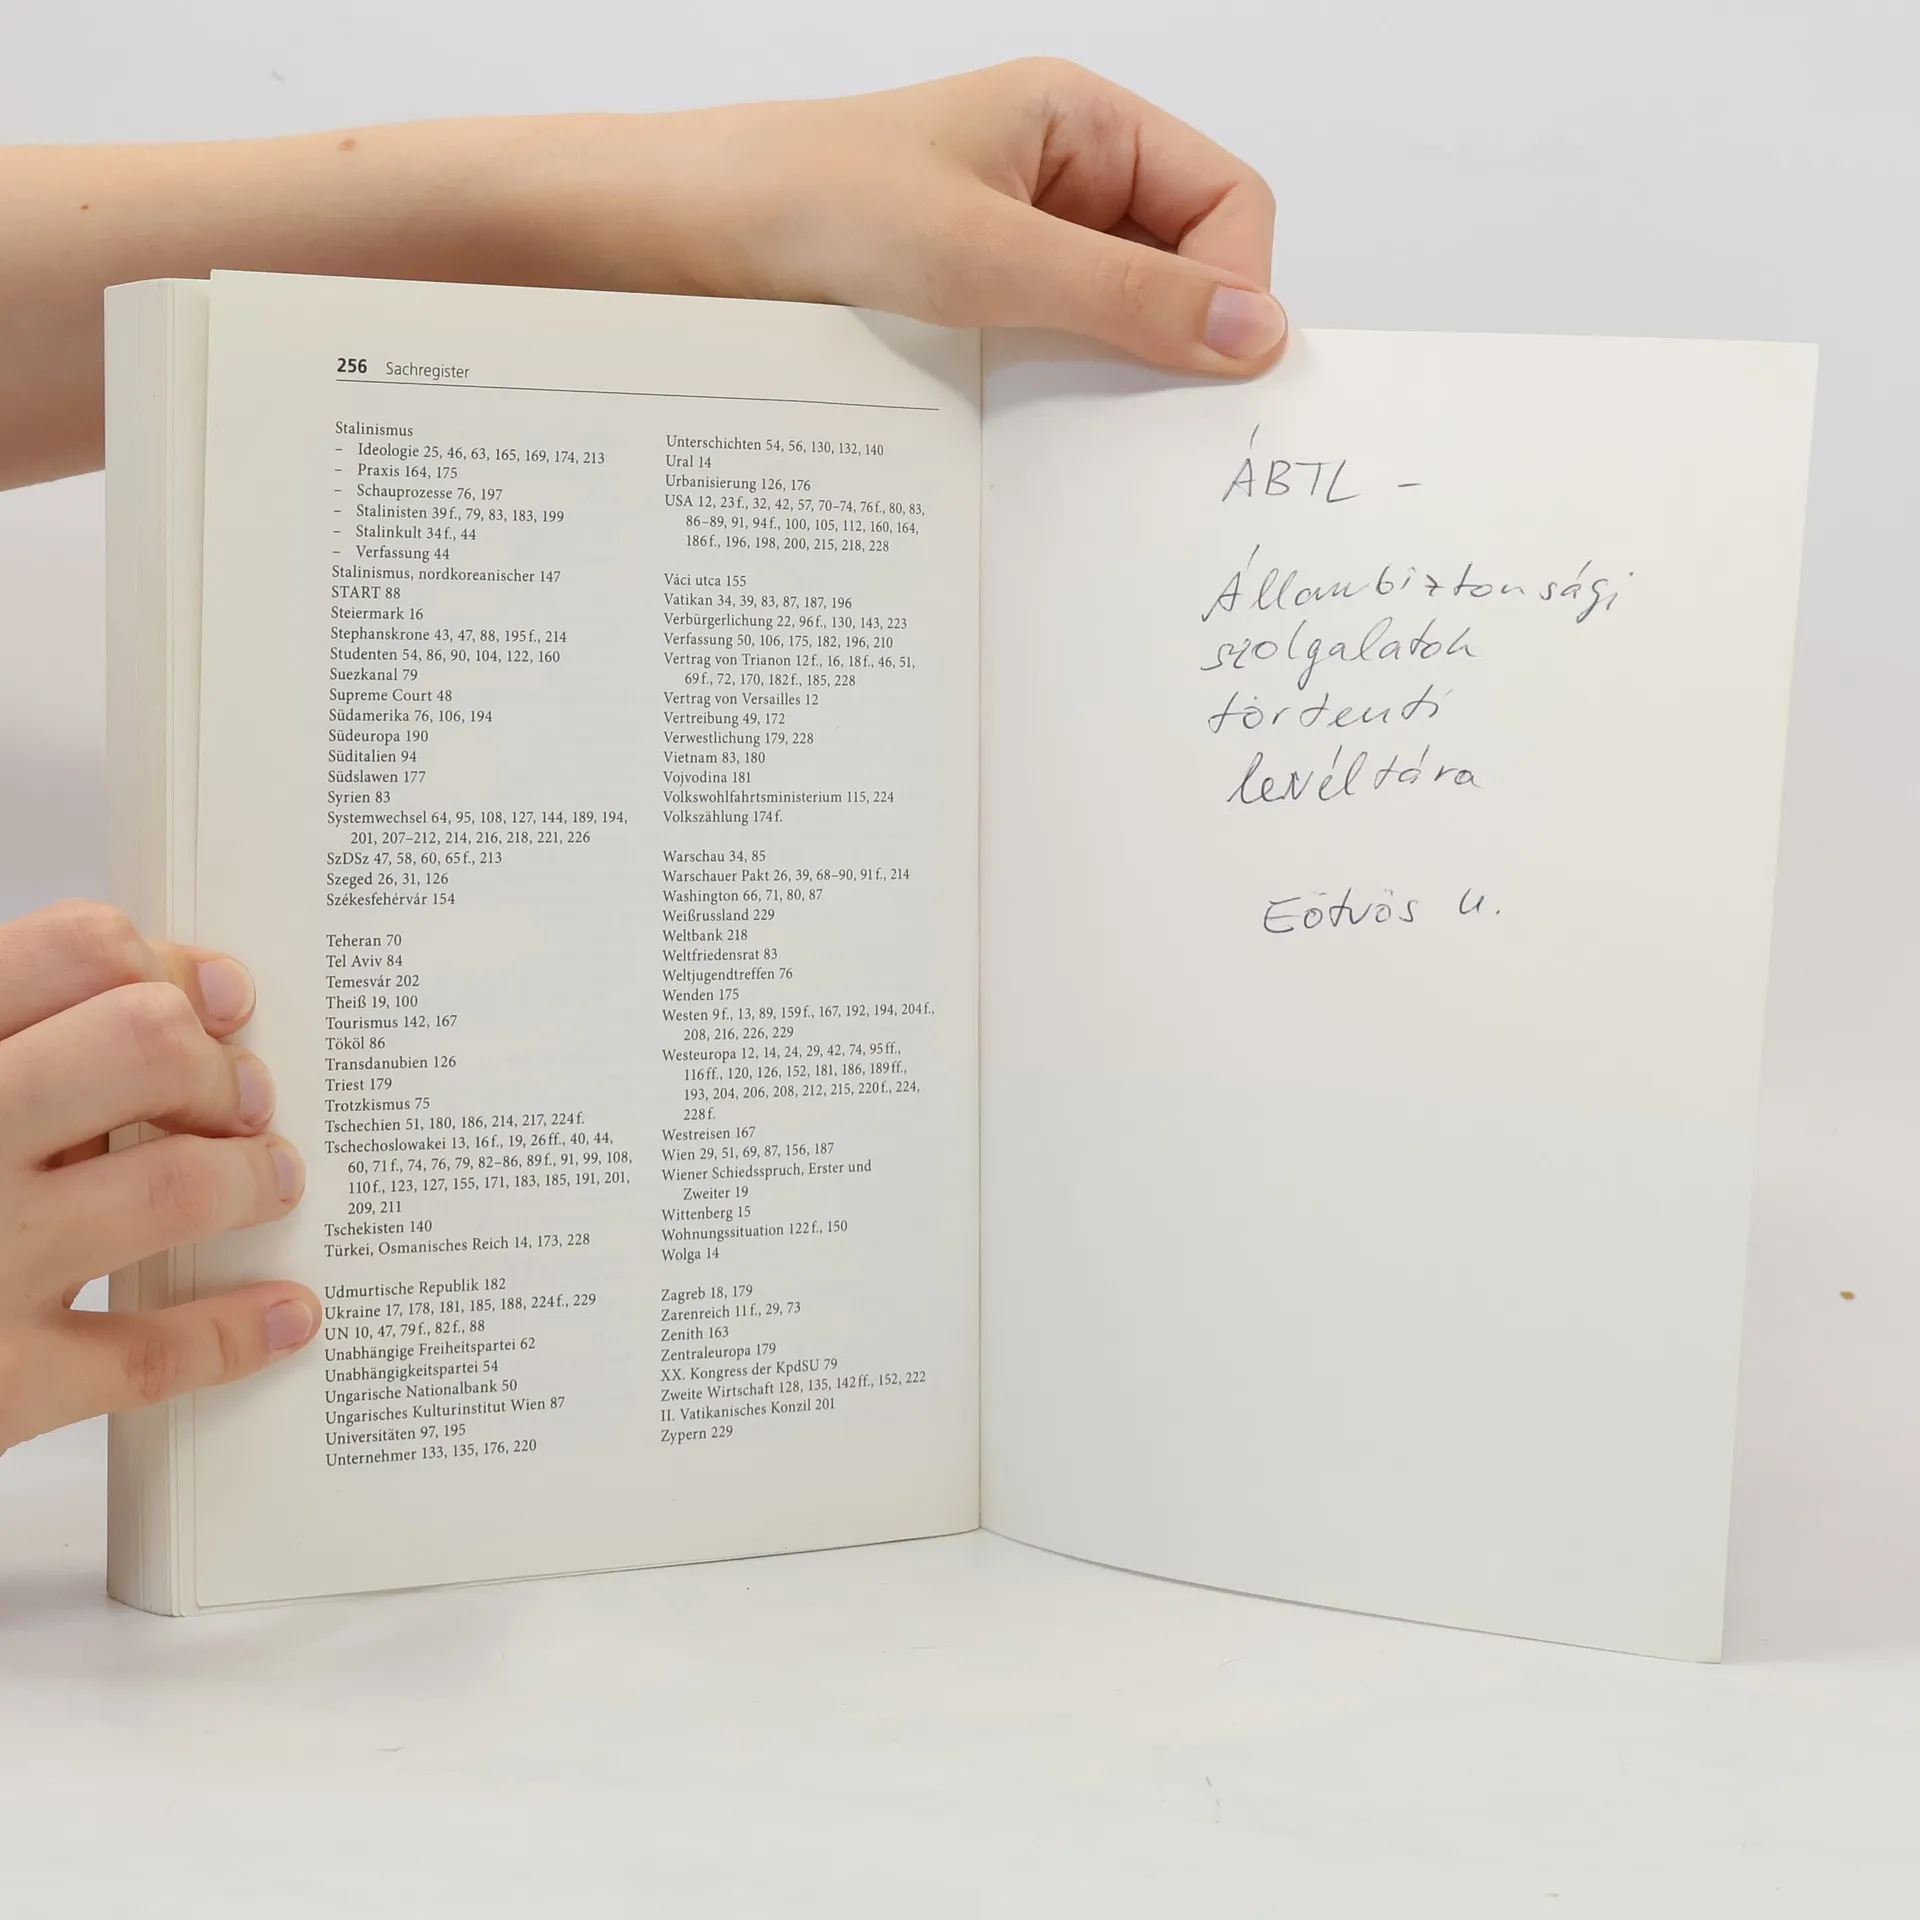 256 Sachregister
Stalinismus
– Ideologie 25, 46, 63, 165, 169, 174, 213
– Praxis 164, 175
– Schauprozesse 76, 197
– Stalinisten 39f., 79, 83, 183, 199
– Stalinkult 34f., 44
– Verfassung 44
Stalinismus, nordkoreanischer 147
START 88
Steiermark 16
Stephanskrone 43, 47, 88, 195f., 214
Studenten 54, 86, 90, 104, 122, 160
Suezkanal 79
Supreme Court 48
Südamerika 76, 106, 194
Südeuropa 190
Süditalien 94
Südslawen 177
Syrien 83
Systemwechsel 64, 95, 108, 127, 144, 189, 194,
201, 207–212, 214, 216, 218, 221, 226
SzDSz 47, 58, 60, 65f., 213
Szeged 26, 31, 126
Székesfehérvár 154
Teheran 70
Tel Aviv 84
Temesvár 202
Theiß 19, 100
Tourismus 142, 167
Tököl 86
Transdanubien 126
Triest 179
Trotzkismus 75
Tschechien 51, 180, 186, 214, 217, 224f.
Tschechoslowakei 13, 16f., 19, 26ff., 40, 44,
60, 71f., 74, 76, 79, 82–86, 89f., 91, 99, 108,
110f., 123, 127, 155, 171, 183, 185, 191, 201,
209, 211
Tschekisten 140
Türkei, Osmanisches Reich 14, 173, 228
Udmurtische Republik 182
Ukraine 17, 178, 181, 185, 188, 224f., 229
UN 10, 47, 79f., 82f., 88
Unabhängige Freiheitspartei 62
Unabhängigkeitspartei 54
Ungarische Nationalbank 50
Ungarisches Kulturinstitut Wien 87
Universitäten 97, 195
Unternehmer 133, 135, 176, 220
Unterschichten 54, 56, 130, 132, 140
Ural 14
Urbanisierung 126, 176
USA 12, 23f., 32, 42, 57, 70–74, 76f., 80, 83,
86–89, 91, 94f., 100, 105, 112, 160, 164,
186f., 196, 198, 200, 215, 218, 228
Váci utca 155
Vatikan 34, 39, 83, 87, 187, 196
Verbürgerlichung 22, 96f., 130, 143, 223
Verfassung 50, 106, 175, 182, 196, 210
Vertrag von Trianon 12f., 16, 18f., 46, 51,
69f., 72, 170, 182f., 185, 228
Vertrag von Versailles 12
Vertreibung 49, 172
Verwestlichung 179, 228
Vietnam 83, 180
Vojvodina 181
Volkswohlfahrtsministerium 115, 224
Volkszählung 174f.
Warschau 34, 85
Warschauer Pakt 26, 39, 68–90, 91f., 214
Washington 66, 71, 80, 87
Weißrussland 229
Weltbank 218
Weltfriedensrat 83
Weltjugendtreffen 76
Wenden 175
Westen 9f., 13, 89, 159f., 167, 192, 194, 204f.,
208, 216, 226, 229
Westeuropa 12, 14, 24, 29, 42, 74, 95ff.,
116ff., 120, 126, 152, 181, 186, 189ff.,
193, 204, 206, 208, 212, 215, 220f., 224,
228f.
Westreisen 167
Wien 29, 51, 69, 87, 156, 187
Wiener Schiedsspruch, Erster und
Zweiter 19
Wittenberg 15
Wohnungssituation 122f., 150
Wolga 14
Zagreb 18, 179
Zarenreich 11f., 29, 73
Zenith 163
Zentraleuropa 179
XX. Kongress der KpdSU 79
Zweite Wirtschaft 128, 135, 142ff., 152, 222
II. Vatikanisches Konzil 201
Zypern 229
ÁBTL –
Állambiztonsági
szolgalatok
törtenti
levéltára
Eötvös u.